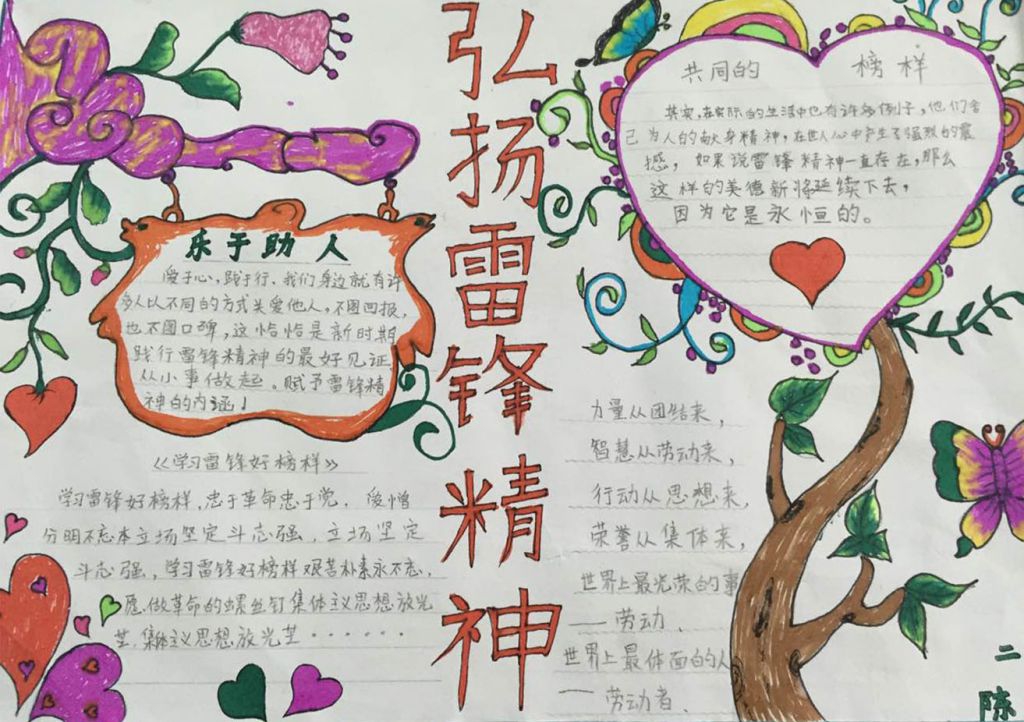 弘扬雷锋精神
乐于助人
爱于心，践于行，我们身边就有许
多人以不同的方式关爱他人，不图回报，
也不图口碑，这恰恰是新时期
践行雷锋精神的最好见证
从小事做起。赋予雷锋精
神的内涵！
《学习雷锋好榜样》
学习雷锋好榜样，忠于革命忠于党，爱憎
分明不忘本立场坚定斗志强，立场坚定
斗志强，学习雷锋好榜样艰苦朴素永不忘，
愿做革命的螺丝钉集体主义思想放光
芒，集体主义思想放光芒······
共同的 榜样
其实，在实际的生活中也有许多例子，他们舍
己为人的献身精神，在世人心中产生了强烈的震
撼，如果说雷锋精神一直存在，那么
这样的美德新将延续下去，
因为它是永恒的。
力量从团结来，
智慧从劳动来，
行动从思想来，
荣誉从集体来，
世界上最光荣的事
—劳动、
世界上最体面的人
—劳动者、
二
陈